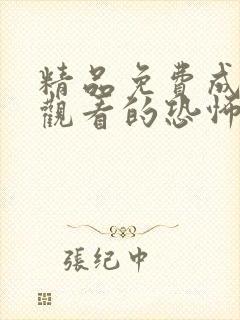 精品免費成
觀看的恐怖
張纪中